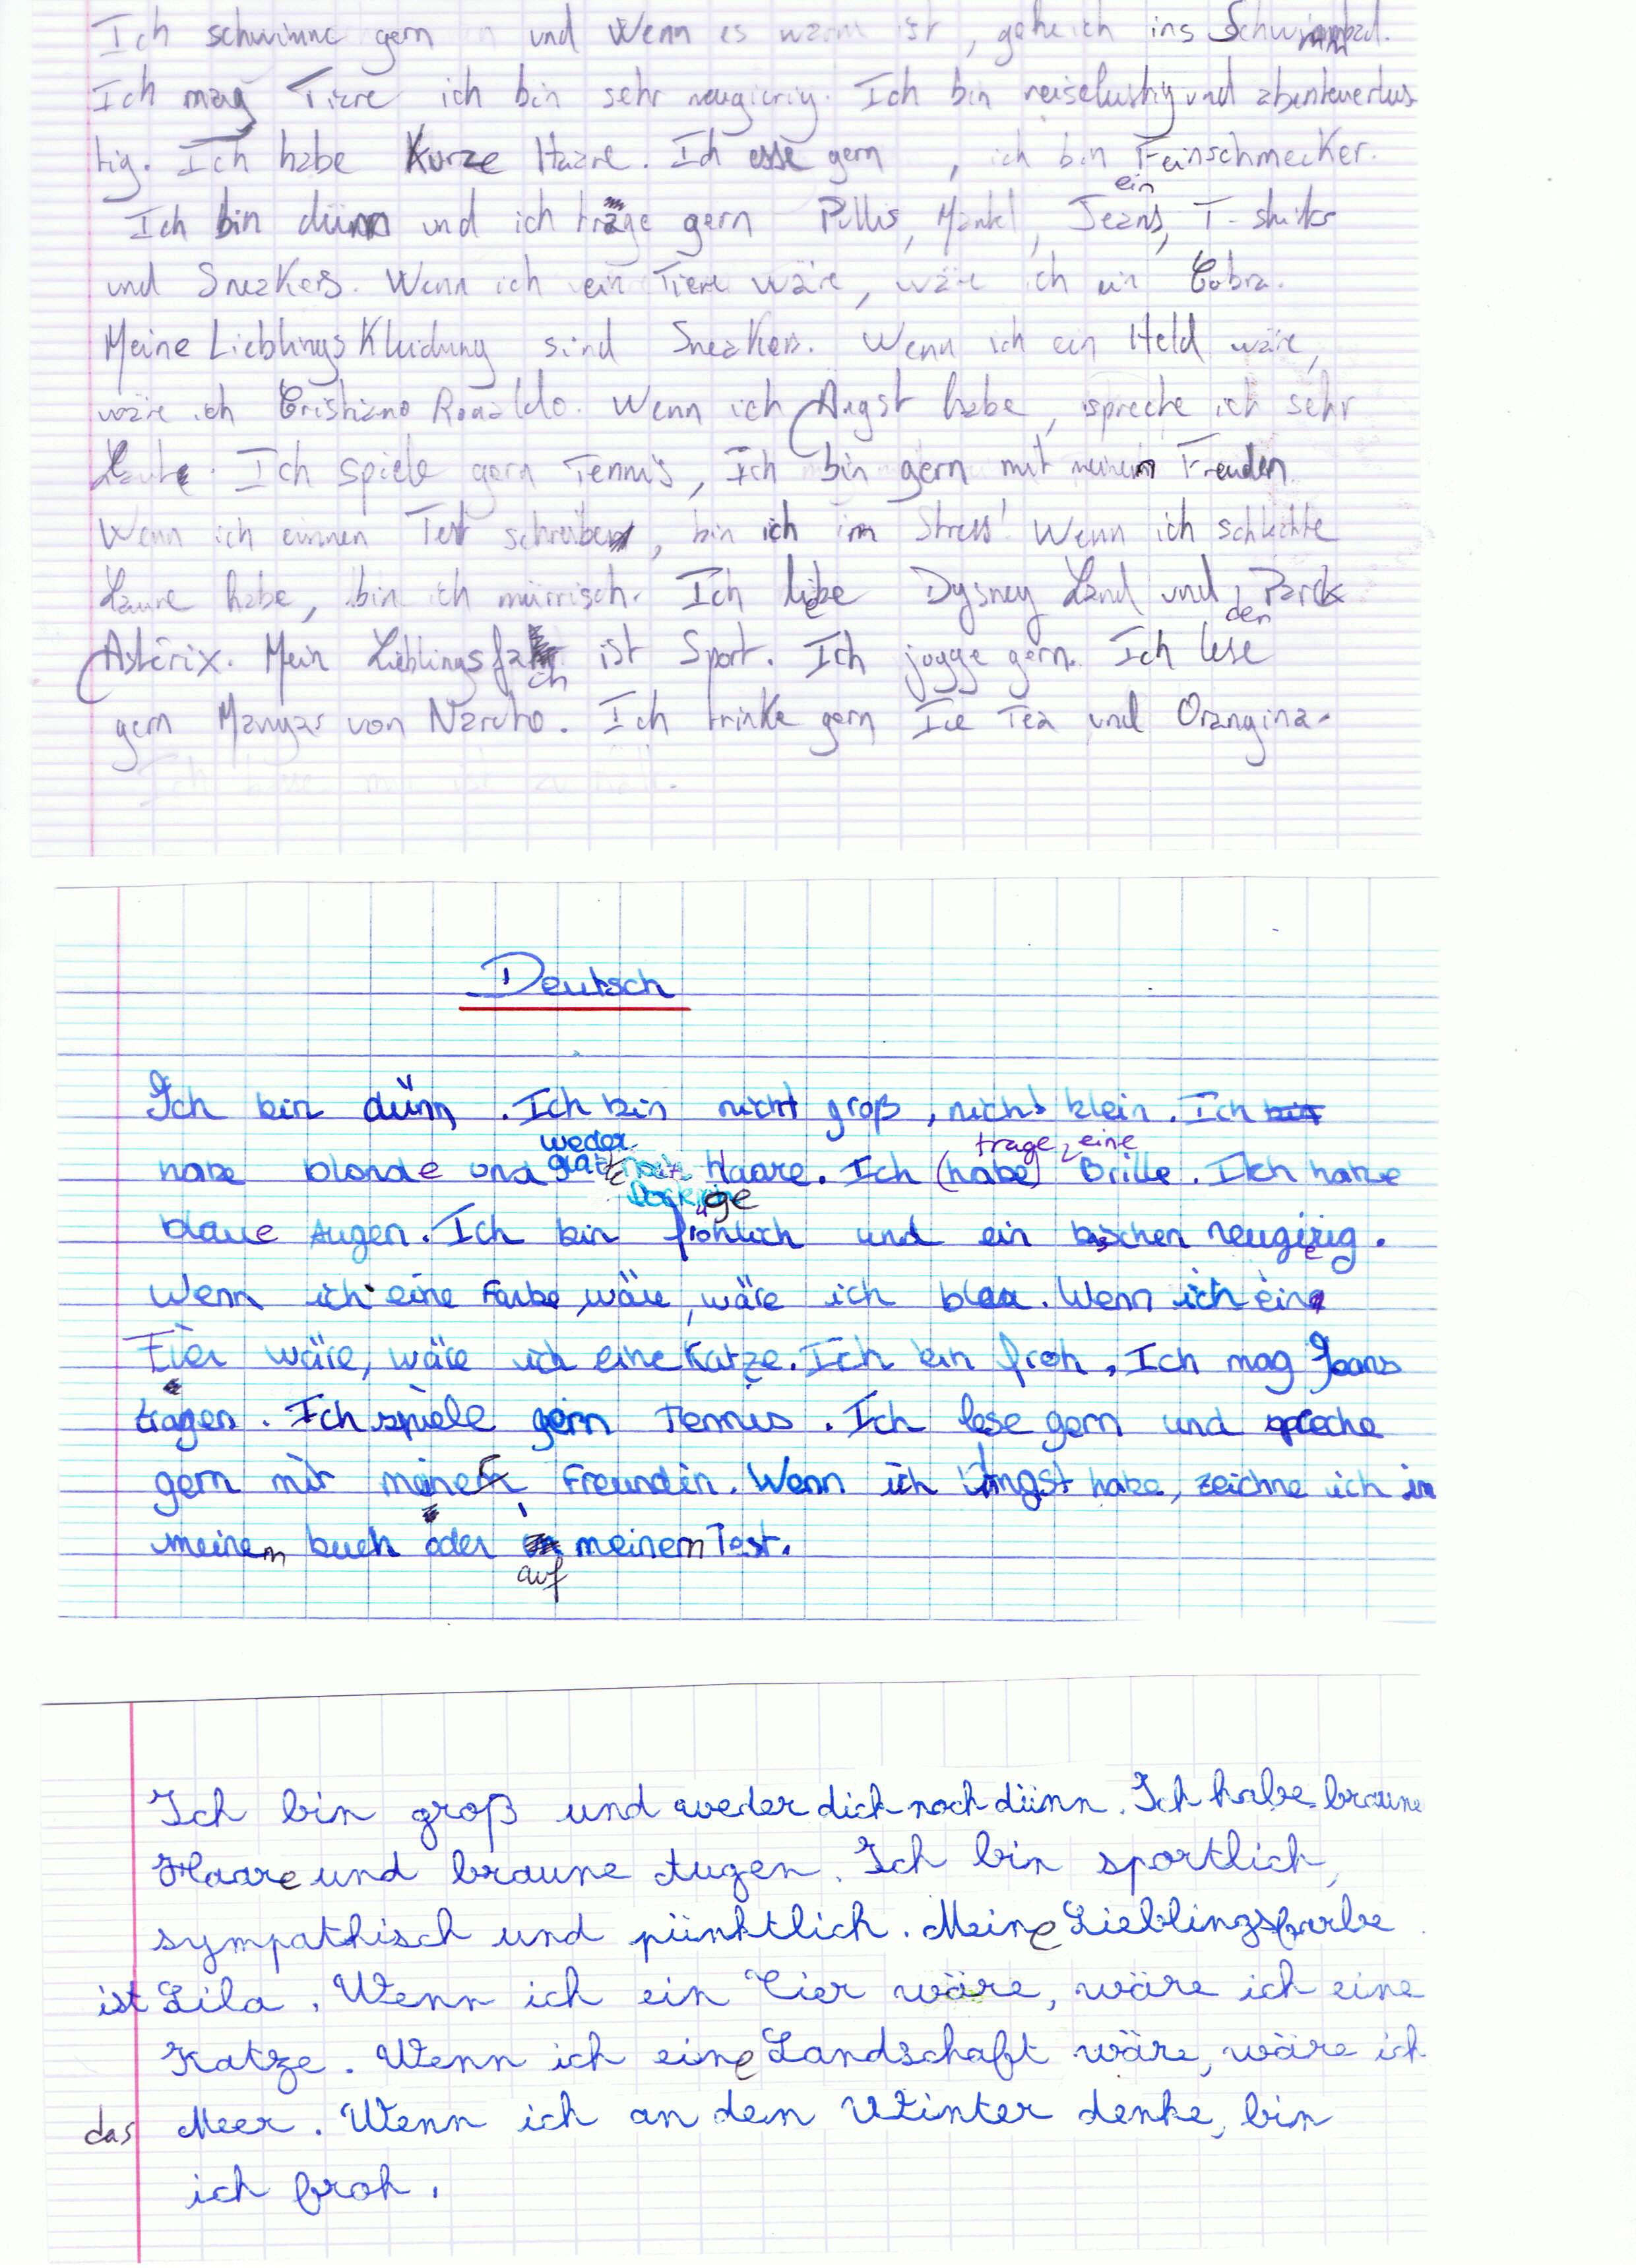 Ich schwimme gern und wenn es warm ist, gehe ich ins Schwimmbad.
Ich mag Tiere ich bin sehr neugierig. Ich bin reiselustig und abenteuerlus
tig. Ich habe kurze Haare. Ich esse gern , ich bin Feinschmecker.
ein
Ich bin dünn und ich träge gern Pullis, Mantel, Jeans, T-shirts
und Sneakers. Wenn ich ein Tiere wäre, wäre ich ein Cobra.
Meine Lieblings Kleidung sind Sneakers. Wenn ich ein Held wäre,
wäre ich Cristiano Ronaldo. Wenn ich Angst habe, spreche ich sehr
Laute. Ich spiele gern Tennis, Ich bin gern mit meinen Freuden.
Wenn ich einnen Test schreibe, bin ich im Stress! Wenn ich schlechte
Laune habe, bin ich mürrisch. Ich liebe Dysney Land und Park
den
Astérix. Mein Lieblingsfach ist Sport. Ich jogge gern. Ich lese
gern Mangas von Naruto. Ich trinke gern Ice Tea und Orangina.
Deutsch
Ich bin dünn. Ich bin nicht groß, nicht klein. Ich
weder trage, eine
habe blonde und glatte noch Haare. Ich (habe) Brille. Ich habe
lockige
blaue Augen. Ich bin fröhlich und ein bischen neugierig.
Wenn ich eine Farbe wäre, wäre ich blau. Wenn ich ein
Tier wäre, wäre ich eine Katze. Ich bin froh, Ich mag Jeans
tragen. Ich spiele gern Tennis. Ich lese gern und spreche
gern mit meiner Freundin. Wenn ich Angst habe, zeichne ich in
meinem buch oder meinem Test.
auf
Ich bin groß und weder dick noch dünn. Ich habe braune
Haare und braune Augen. Ich bin sportlich,
sympathisch und pünktlich. Meine Lieblingsfarbe
ist Lila. Wenn ich ein Tier wäre, wäre ich eine
Katze. Wenn ich eine Landschaft wäre, wäre ich
das Meer. Wenn ich an den Winter denke, bin
ich froh.